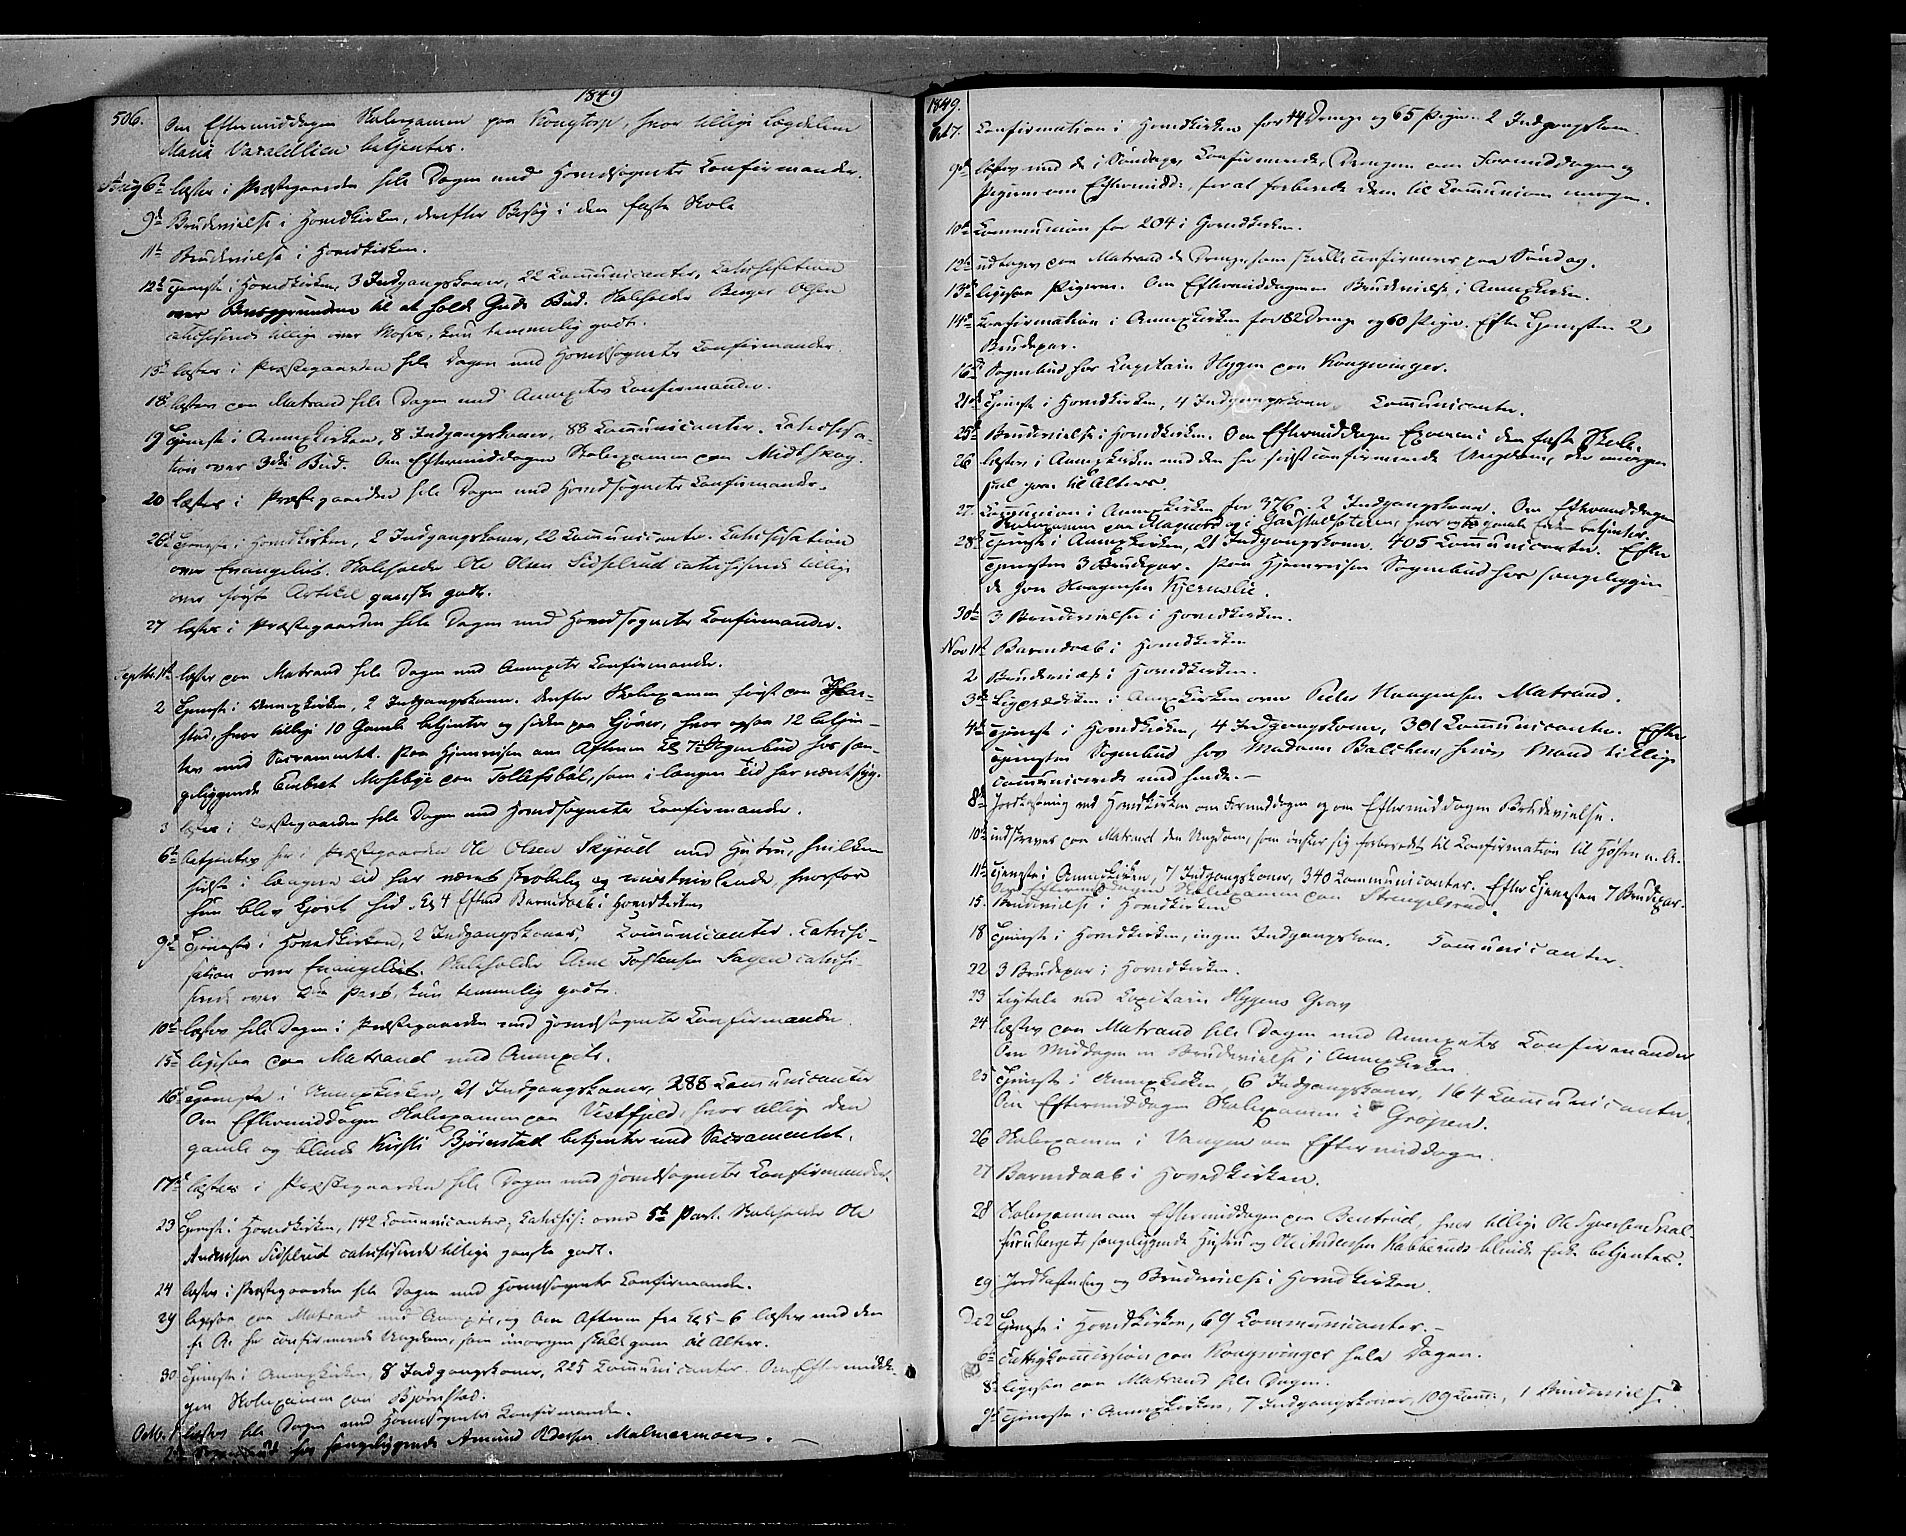 506.
1849
Om Eftermiddagen Skoleexamen paa Kongtorp, hvor tillige Lægdslem
Maria Varaldlien betjentes.
Aug 6te læstes i Præstegaarden hele Dagen med Hovedsognets Confirmander.
9de Brudevielse i Hovedkirken, derefter Besøg i den faste Skole
11te Brudevielse i Hovedkirken.
12te Tjeneste i Hovedkirken, 3 Indgangskoner, 22 Communicanter, Catechisation
over Bevæggrundene til at holde Guds Bud. Skoleholder Berger Olsen
catechiserede tillige over Moses, kun temmelig godt.
13de læstes i Præstegaarden hele Dagen med Hovedsognets Confirmander
18de læstes paa Matrand hele Dagen med Annexets Confirmander.
19 Tjeneste i Annexkirken, 8 Indgangskoner, 88 Communicanter. Catechisa-
tion over 3die Bud. Om Eftermiddagen Skoleexamen paa Midtskog.
20 læstes i Præstegaarden hele Dagen med Hovedsognets Confirmander.
26de Tjeneste i Hovedkirken, 2 Indgangskoner, 22 Communicanter. Catechisation
over Evangeliet. Skoleholder Ole Olsen Sidselrud catechiserede tillige
over første Artikel ganske godt.
27 læstes i Præstegaarden hele Dagen med Hovedsognets Confirmander.
Septbr. 1ste læstes paa Matrand hele Dagen med Annexets Confirmander.
2 Tjeneste i Annexkirken, 2 Indgangskoner. Derefter Skoleexamen først paa
stad, hvor tillige 10 Gamle betjentes og siden paa Hjøner, hvor ogsaa 12 betjen-
tes med Sacramentet. Paa Hjemreisen om Aftenen Kl 7 Sognebud hos sen-
geliggende Embret Mosebye paa Tollefsbøl, som i lang Tid har været syg.
3 læstes i Præstegaarden hele Dagen med Hovedsognets Confirmander.
6te betjentes her i Præstegaarden Ole Olsen Skyrud med Hustru, hvilken
sidste i længere Tid har været skrøbelig og mistvivlende, hvorfor
hun blev kjørt hid. Kl 4 Efterm Barnedaab i Hovedkirken
9de Tjeneste i Hovedkirken, 2 Indgangskoner, Communicanter. Catechi-
sation over Evangeliet. Skoleholder Arne Tostensen Sagen catechi-
serede over 2den Part, kun temmelig godt.
10de læstes hele Dagen i Præstegaarden med Hovedsognets Confirmander.
15de ligesaa paa Matrand med Annexets.
16de Tjeneste i Annexkirken, 21 Indgangskoner, 288 Communicanter
Om Eftermiddagen Skoleexamen paa Vestfjeld, hvor tillige den
gamle og blinde Kirsti Bjørnstad betjentes med Sacramentet.
17de læstes i Præstegaarden hele Dagen med Hovedsognets Confirmander.
23 Tjeneste i Hovedkirken, 142 Communicanter, Catechis: over 5te Part. Skoleholder Ole
Andersen Sidselrud catechiserede tillige ganske godt.
24 læstes i Præstegaarden hele Dagen med Hovedsognets Confirmander.
29 ligesaa paa Matrand med Annexets, og Om Aftenen fra Kl 5-6 læstes med den
f. A. her confirmerede Ungdom, som imorgen skulde gaae til Alters.
30 Tjeneste i Annexkirken, 8 Indgangskoner, 225 Communicanter. Om Eftermidda-
gen Skoleexamen paa Bjørnstad.
Octb. 1 læstes hele Dagen med Hovedsognets Confirmander.
2den Sognebud hos sengeliggende Amund Pedersen Malmermoen.
1849.
Oct 7. Confirmation i Hovedkirken for 44 Drenge og 65 Piger. 2 Indgangskoner.
9de læstes med de i Søndags Confirmerede, Drengene om Formiddagen og
Pigerne om Eftermidd:, for at forberede dem til Communion imorgen.
10de Communion for 204 i Hovedkirken.
12te udtoges paa Matrand de Drenge, som skulle confirmeres paa Søndag.
13de ligesaa Pigerne. Om Eftermiddagen Brudevielse i Annexkirken.
14de Confirmation i Annexkirken for 82 Drenge og 60 Piger. Efter Tjenesten 2
Brudepar.
16de Sognebud hos Capitain Hygen paa Kongsvinger.
21de Tjeneste i Hovedkirken, 4 Indgangskoner Communicanter.
25de Brudevielse i Hovedkirken. Om Eftermiddagen Examen i den faste Skole.
26 læstes i Annexkirken med den her sidst confirmerede Ungdom, der imorgen
skal gaae til Alters.
27. Communion i Annexkirken for 376. 2 Indgangskoner. Om Eftermiddagen
Skoleexamen paa Magnord
28de Tjeneste i Annexkirken, 21 Indgangskoner. 405 Communicanter. Efter
Tjenesten 3 Brudepar. Paa Hjemreisen Sognebud hos sengeliggen-
de Jon Haagensen Kjernslie.
30te 3 Brudevielser i Hovedkirken.
Nov 1ste Barnedaab i Hovedkirken
2 Brudevielse i Hovedkirken.
3de Ligprædiken i Annexkirken over Peder Haagensen Matrand.
4de Tjeneste i Hovedkirken, 4 Indgangskoner, 301 Communicanter. Efter
Tjenesten Sognebud hos Madame Balchen, hvis Mand tillige
communicerede med hende.-
8de Jordfæstning ved Hovedkirken om Formiddagen og om Eftermiddagen Brudevielse.
10de indskreves paa Matrand den Ungdom, som ønsker sig forberedet til Confirmation til Høsten n. A.
11te Tjeneste i Annexkirken, 7 Indgangskoner, 340 Communicanter. Efter Tjenesten 7 Brudepar.
Om Eftermiddagen Skoleexamen paa Strengelsrud.
15. Brudevielse i Hovedkirken
18 Tjeneste i Hovedkirken, ingen Indgangskone. Communicanter.
22 3 Brudepar i Hovedkirken.
23 Ligtale ved Capitain Hygens Grav
24 læstes paa Matrand hele Dagen med Annexets Confirmander
Om Middagen en Brudevielse i Annexkirken
25 Tjeneste i Annexkirken 6 Indgangskoner, 164 Communicanter.
Om Eftermiddagen Skoleexamen i Grøpen.
26 Skoleexamen i Vangen om Eftermiddagen.
27 Barnedaab i Hovedkirken.
28 Skoleexamen om Eftermiddagen paa Bentrud, hvor tillige Ole Syversen
Furubergets sengeliggende Hustru og Ole Andersen Rabberuds blinde Enke betjentes.
29 Jordfæstning og Brudevielse i Hovedkirken.
Dec 2 Tjeneste i Hovedkirken, 69 Communicanter.-
6te Fattigcommission paa Kongsvinger hele Dagen.
8de ligesaa paa Matrand hele Dagen.
9de Tjeneste i Annexkirken, 7 Indgangskoner, 109 Comm:, 1 Brudevielse